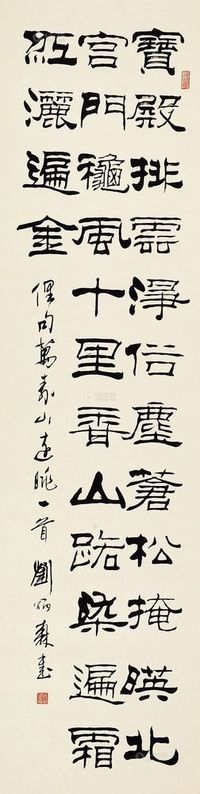 寶殿排雲淨俗塵蒼松掩暎北
宮門龝風十里香山路染遍霜
紅灑遍金
偶句萬壽山遠眺一首 劉炳森書